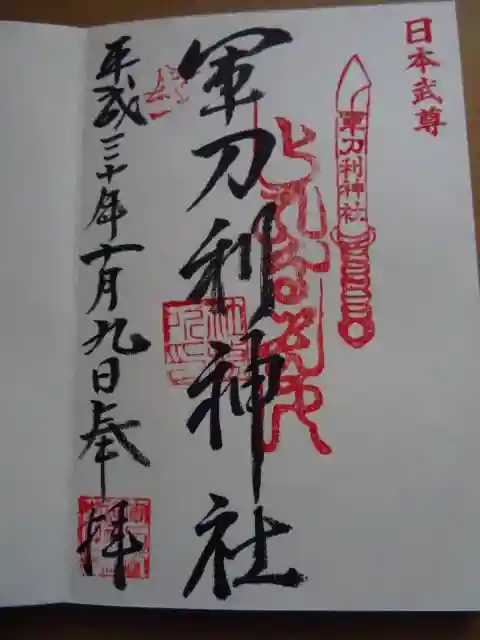 日本武尊
軍刀利神社
軍刀利神社
平成三十年十一月九日奉拝